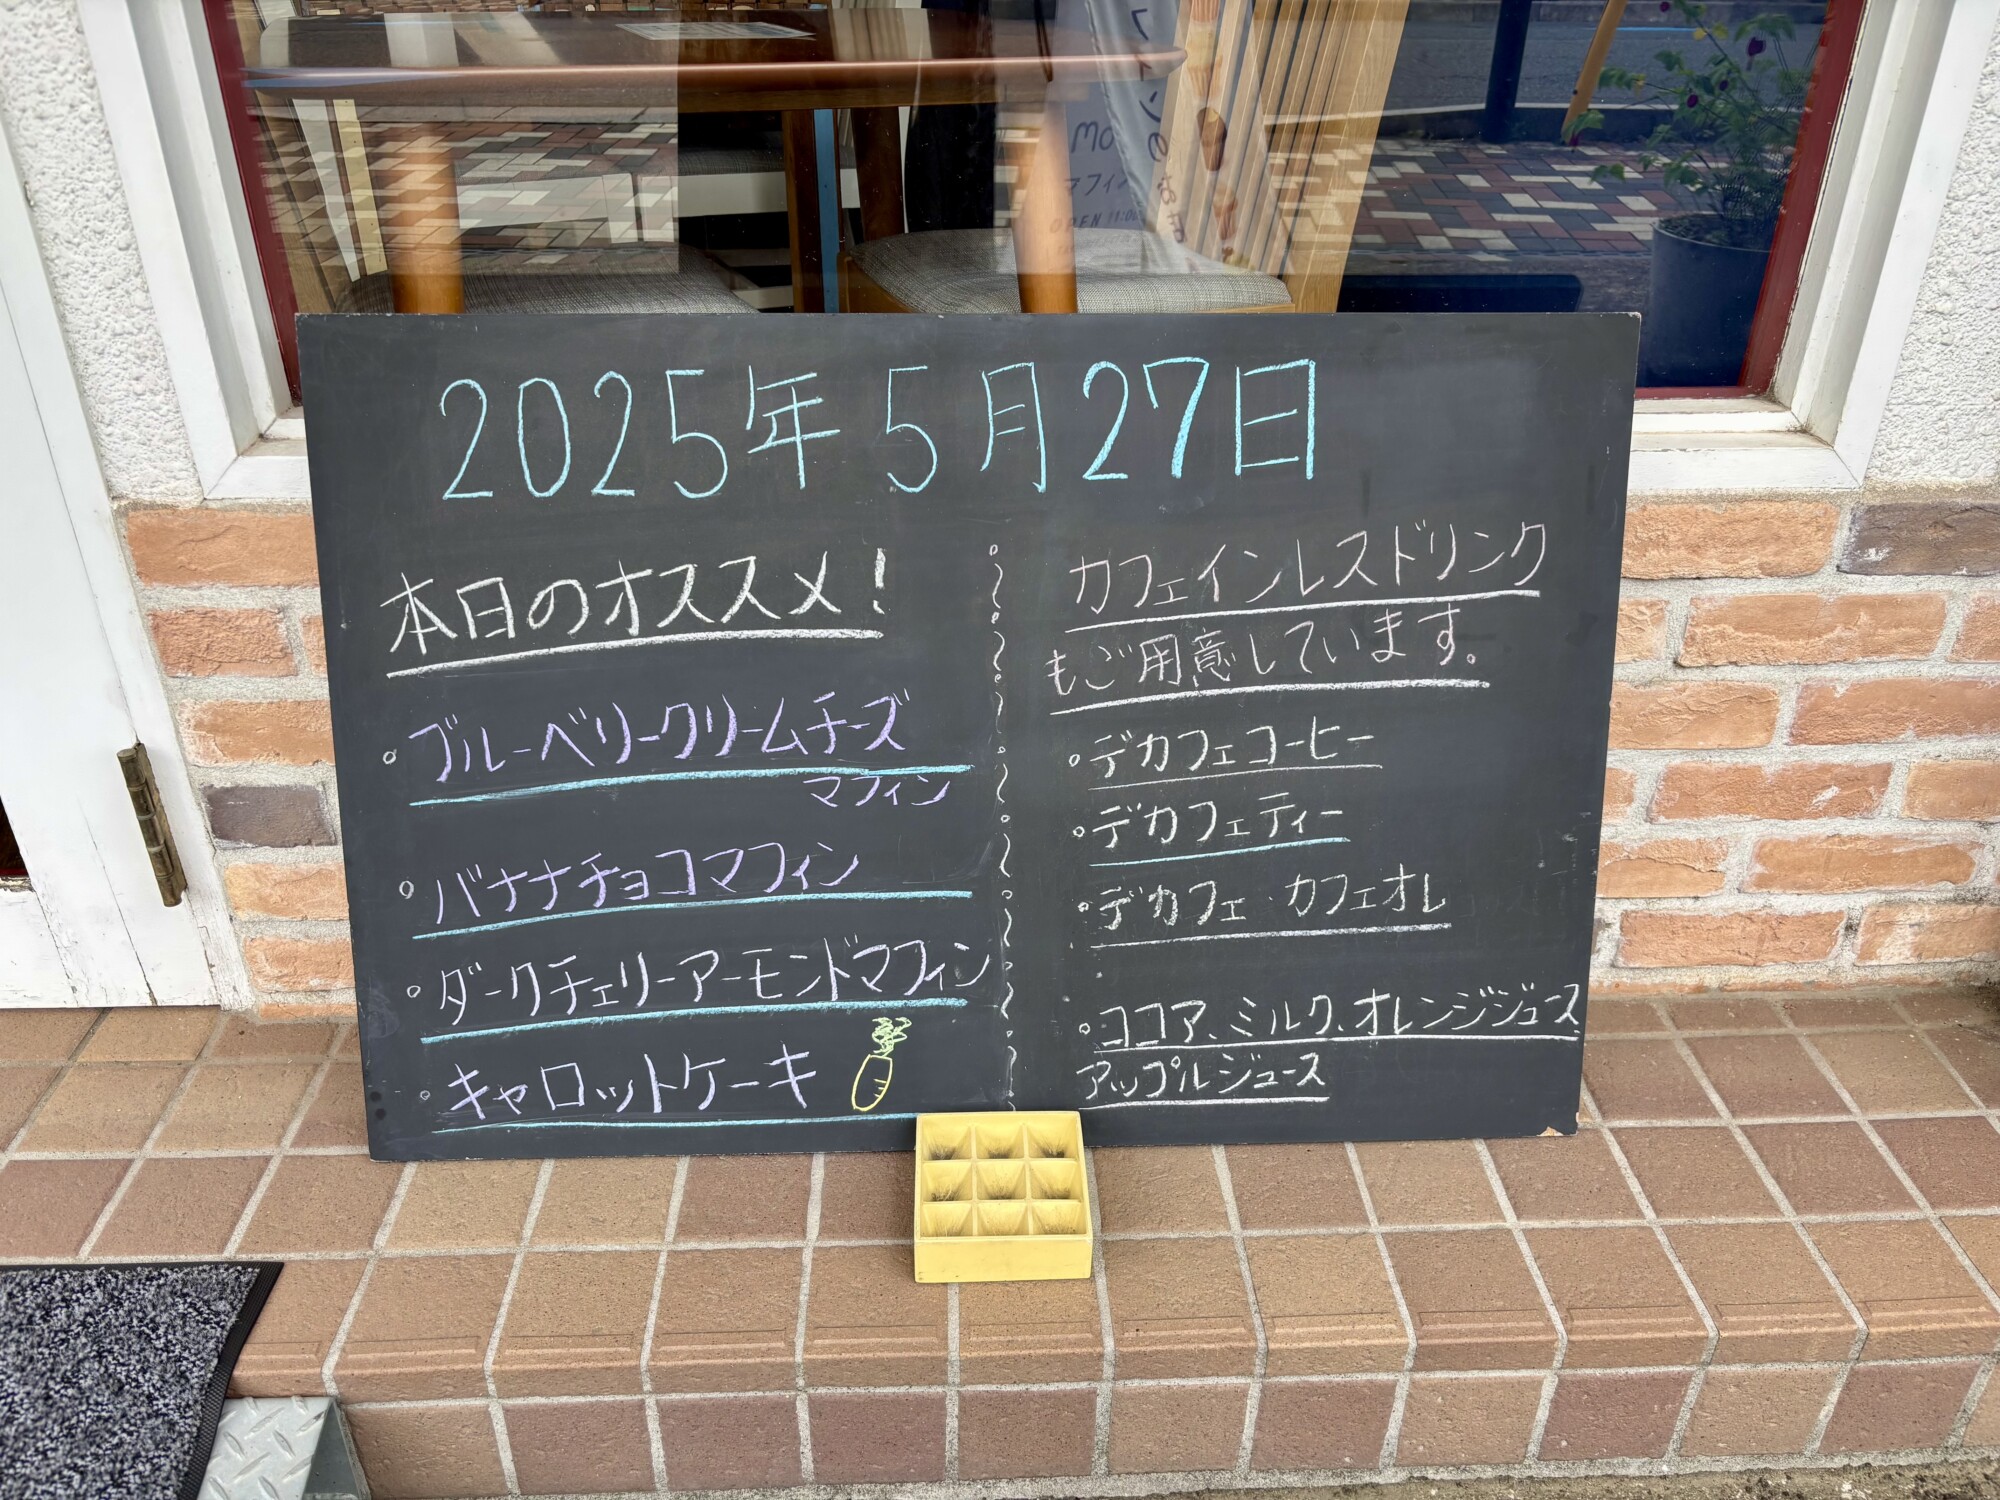 2025年5月27日
本日のオススメ!
。ブルーベリークリームチーズ
マフィン
。バナナチョコマフィン
。ダークチェリーアーモンドマフィン
。キャロットケーキ
カフェインレスドリンク
もご用意しています。
。デカフェコーヒー
。デカフェティー
。デカフェ・カフェオレ
。ココア、ミルク、オレンジジュース
アップルジュース
マフィ
OPEN 11:00